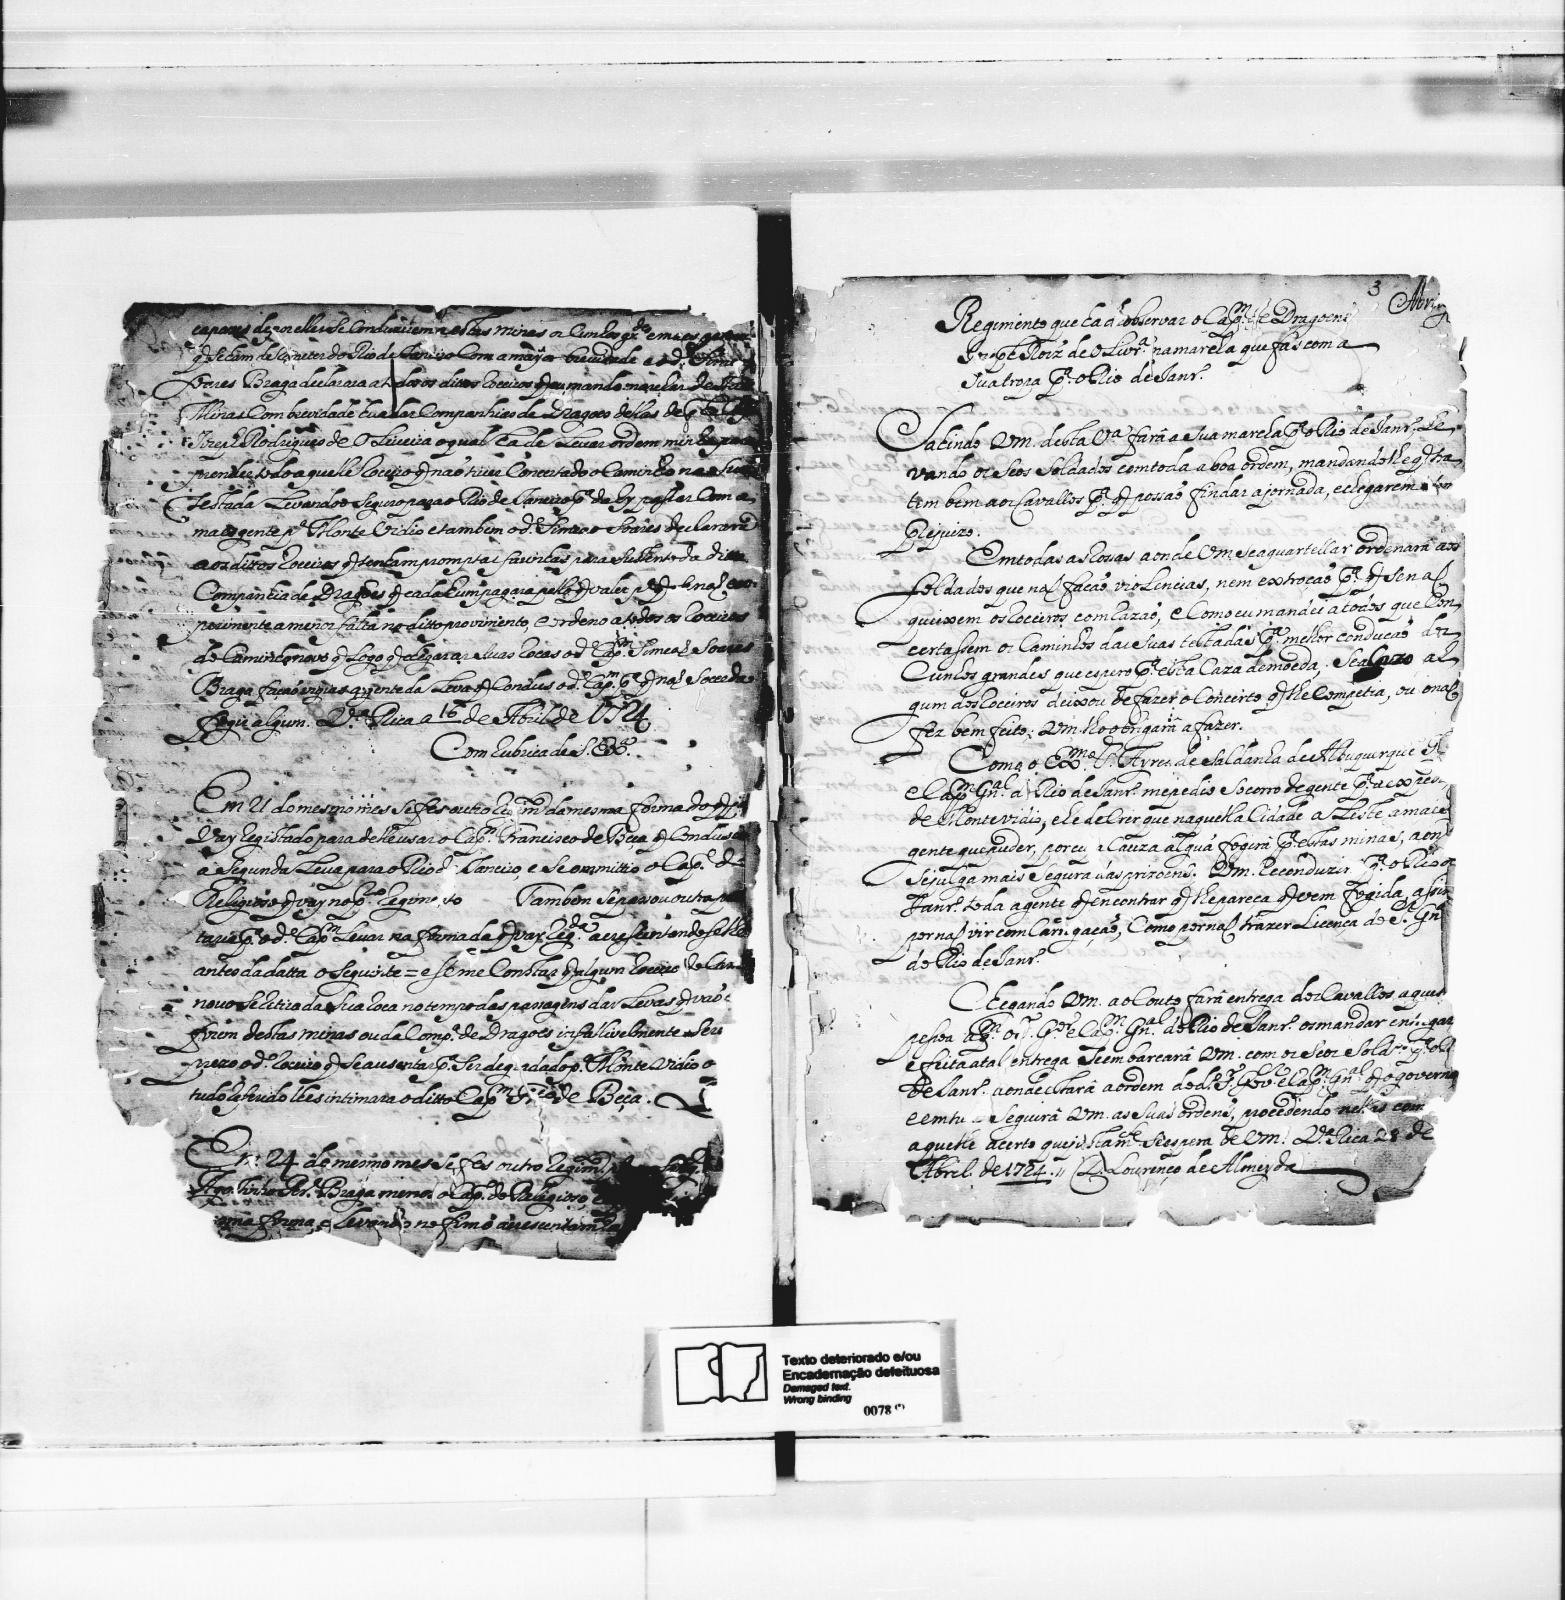 capazes de por elles se conduzirem a estas minas os cunhos q
q̃ se ham de remeter do Rio de Janeiro com a mayor brevidade e o d.º Simeaõ
Soares Braga declarara a todos os dittos roceiros q̃ eu mando marchar destas
Minas com brevidade hua das Companhias de Dragoes dellas de q̃ he Cap.
Joseph Rodrigues de Oliveira o qual ha de levar ordem minha para
prender todo aquelle roceiro q̃ naõ tiver concertado o caminho na sua
testada levando o seguro para o Rio de Janeiro p.ª dahy passar com a
mais gente p.ª Monte Vidio e tambem o d.º Simeaõ Soares declarará
aos dittos roceiros q̃ tenham promptas farinhas para sustento da ditta
Companhia de Dragões q̃ cada hum pagara pello q̃ valer
a menor falta no ditto provimento, e ordeno a todos os roceiros
do Caminho novo q̃ logo q̃ chegar as suas rocas o d.º Cap.ᵐ Simeaõ Soares
Braga façaõ vigias a gente da Leva q̃ conduz o d.º Cap.ᵐ p.ª q̃ naõ succeda
fugir algum. V.ª Rica a 16 de Abril de 1724
Com rubrica de S. Ex.ª
Em 21 do mesmo mes se fes outro reg.ᵗᵒ da mesma forma do q̃
vay registado para delle usar o Cap.ᵐ Francisco de Beça q̃ conduz
a segunda Leva para o Rio de Janeiro e se ommittio o Cap.º do
Religioso q̃ vay no p.ʳᵒ regim.ᵗᵒ Tambem se passou outra por
taria p.ª o d.º Cap.ᵐ levar na forma da q̃ vay reg.ᵈᵃ acrescentandoselhe
antes da datta o seguinte = e se me constar q̃ algum roceiro do Cam.
novo se retira da sua roca no tempo das passagens das Levas q̃ vaõ
forem destas minas ou da Comp.ª de Dragoes infalivelmente será
prezo o d.º roceiro q̃ se ausentar p.ª ser degradado p.ª Monte Vidio o
tudo referido lhes intimara o ditto Cap.ᵐ Fr.ᶜᵒ de Beça.
Em 24 do mesmo mes se fes outro regim.ᵗᵒ p.
Agostinho Per.ª Braga menos o Cap.º do Religioso e
uma forma, e levando no fim o acrescentam.ᵗᵒ
3
Abril
Regimento que ha de observar o Cap.ᵐ de Dragoens
Joseph Roiz de Olivr.ª na marcha que fas com a
sua tropa p.ª o Rio de Janr.º
Sahindo Vm. desta V.ª fará a sua marcha p.ª o Rio de Janr.º le
vando os seos soldados com toda a boa ordem, mandandolhe q̃ tra
tem bem aos Cavallos p.ª q̃ possaõ findar a jornada, e chegarem sem
prejuizo.
Em todas as rossas aonde Vm. se aquartellar ordenará aos
soldados que naõ façaõ violencias, nem extroçaõ p.ª q̃ se naõ
queixem os roceiros com razaõ, e como eu mandei a todos que con
certassem os caminhos das suas testadas p.ª melhor conduçaõ dos
Cunhos grandes que espero p.ª esta Caza de moeda, se acazo al
gum dos roceiros deixou de fazer o concerto q̃ lhe competia, ou o naõ
fez bem feito; Vm. lho obrigará a fazer.
Como o Ex.ᵐᵒ S.ʳ Ayres de Saldanha de Albuquerque G.
e Cap.ᵐ Gn.ˡ do Rio de Janr.º me pedio socorro de gente p.ª a expres
de Monte vidio, e he de crer que naquella Cidade aliste a mais
gente que puder, por cuja cauza algua fogirá p.ª estas minas, aon
se julga mais segura das prizoens. Vm. reconduzir p.ª o Rio de
Janr.º toda a gente q̃ encontrar q̃ lhe pareça q̃ vem fogida, assim
por naõ vir com carregaçaõ, como por naõ trazer licença do S.ʳ Gn.ˡ
do Rio de Janr.º
Chegando Vm. ao Couto fará entrega dos Cavallos a quem
pessoa a q.ᵐ o S.ʳ G.ᵒʳ e Cap.ᵐ Gn.ˡ do Rio de Janr.º os mandar entregar
e feita a tal entrega se embarcará Vm. com os seos sold.ᵒˢ p.ª o R.
de Janr.º aonde estará a ordem do d.º S.ʳ Gov.ᵒʳ e Cap.ᵐ Gn.ˡ q̃ o governa
e em tu seguirá Vm. as suas ordens, procedendo nellas com
aquelle acerto que justam.ᵗᵉ se espera de Vm. V.ª Rica 28 de
Abril de 1724. // D. Lourenço de Almeyda
Texto deteriorado e/ou
Encadernação defeituosa
Damaged text.
Wrong binding
0078 (*)